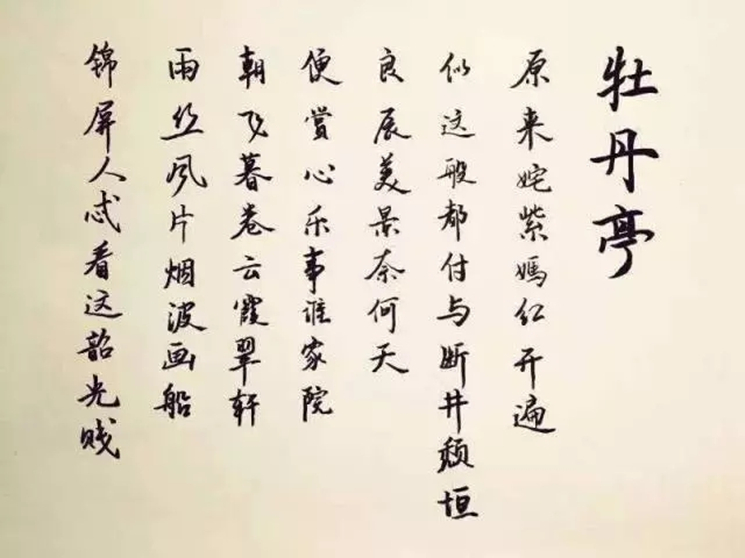 牡丹亭
原来姹紫嫣红开遍
似这般都付与断井颓垣
良辰美景奈何天
便赏心乐事谁家院
朝飞暮卷云霞翠轩
雨丝风片烟波画船
锦屏人忒看这韶光贱